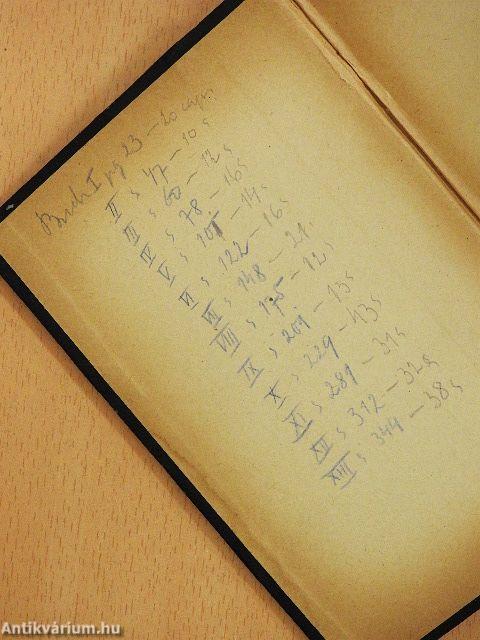 Buch I pg 23 — 20 cap.
II s 47 — 10 s
III s 60 — 12 s
IV s 78 — 16 s
V s 101 — 14 s
VI s 122 — 16 s
VII s 148 — 21.
VIII s 175 — 12 s
IX s 201 — 13 s
X s 229 — 43 s
XI s 281 — 31 s
XII s 312 — 32 s
XIII s 344 — 38 s
Antikvárium.hu